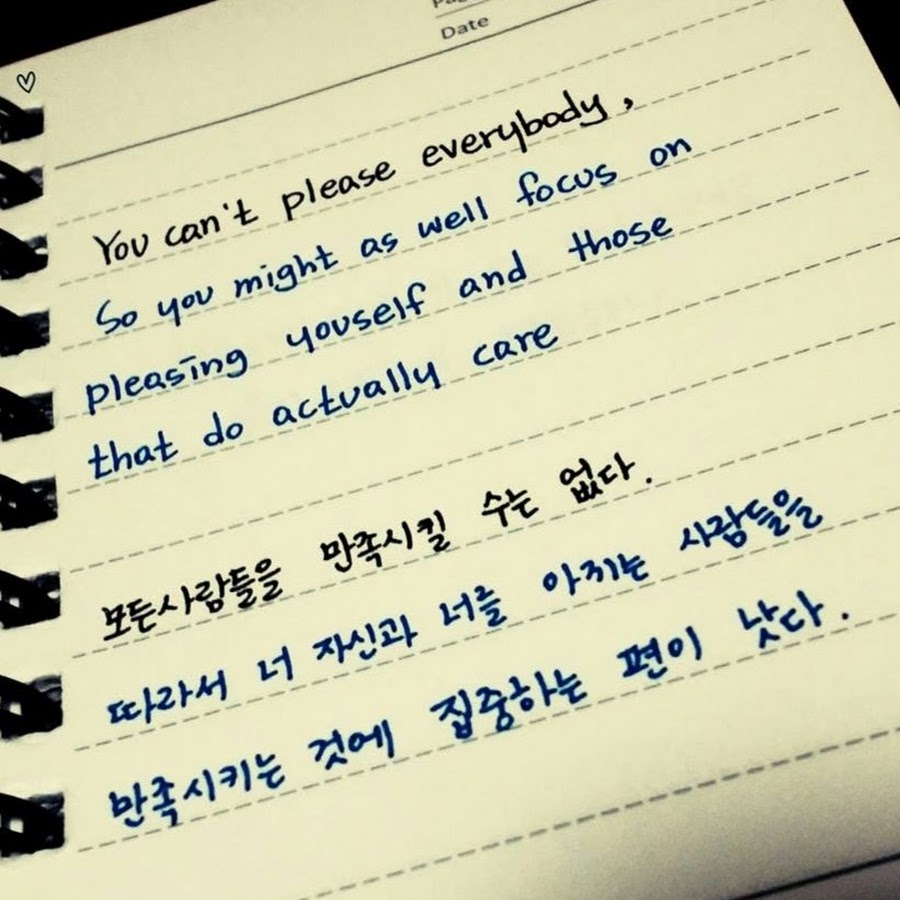 Date
You can't please everybody,
So you might as well focus on
pleasing youself and those
that do actually care
모든사람들을 만족시킬 수는 없다.
따라서 너 자신과 너를 아끼는 사람들을
만족시키는 것에 집중하는 편이 낫다.